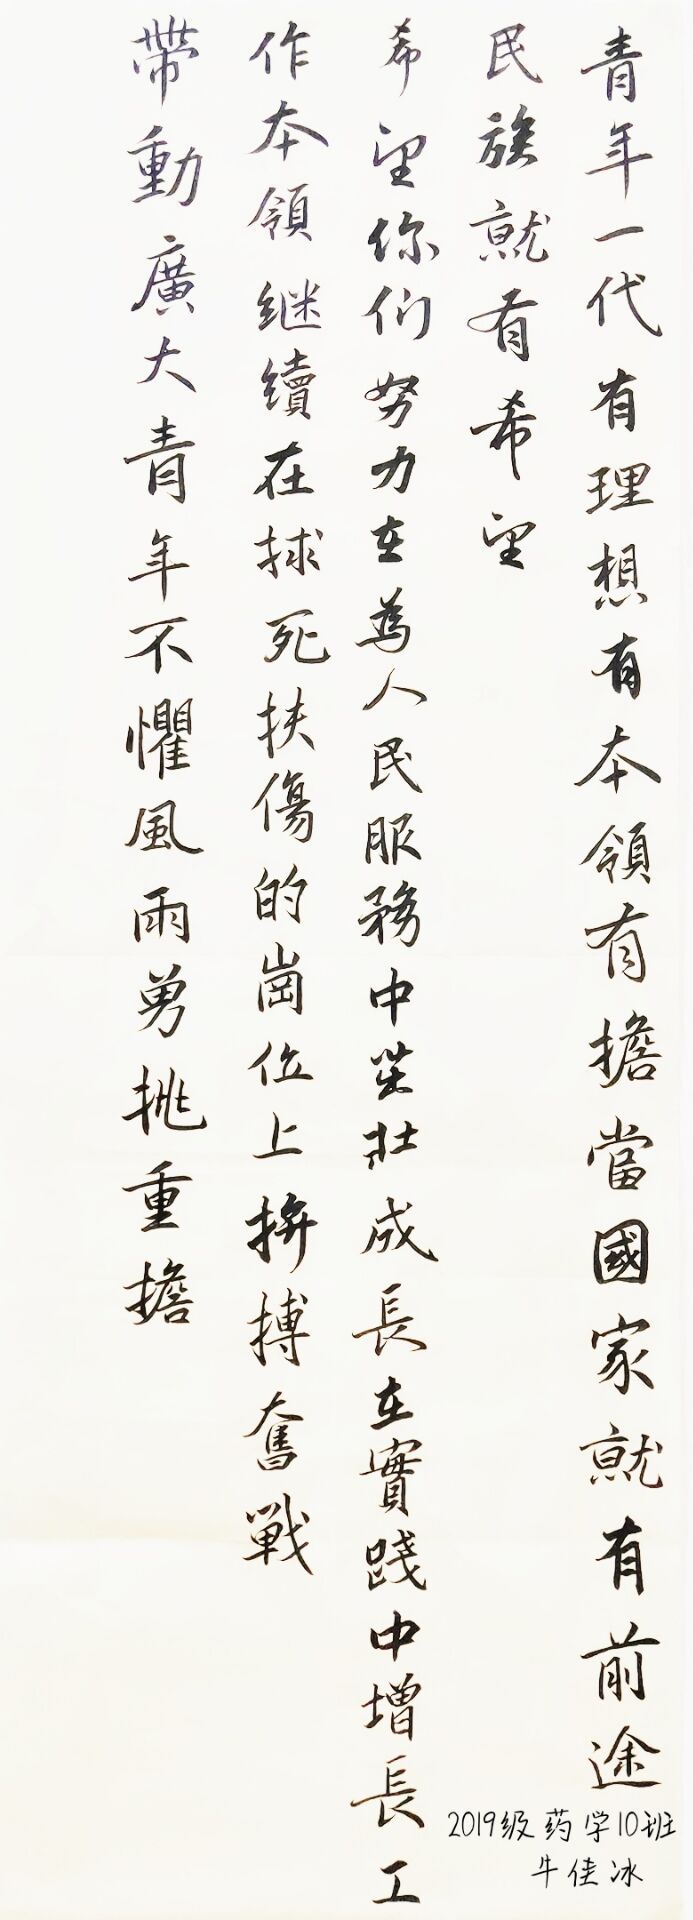 青年一代有理想有本領有擔當國家就有前途
民族就有希望
希望你们努力在為人民服務中茁壯成長在實踐中增長工
作本領继續在捄死扶傷的崗位上拚搏奮戰
帶動廣大青年不懼風雨勇挑重擔
2019级药学10班
牛佳冰